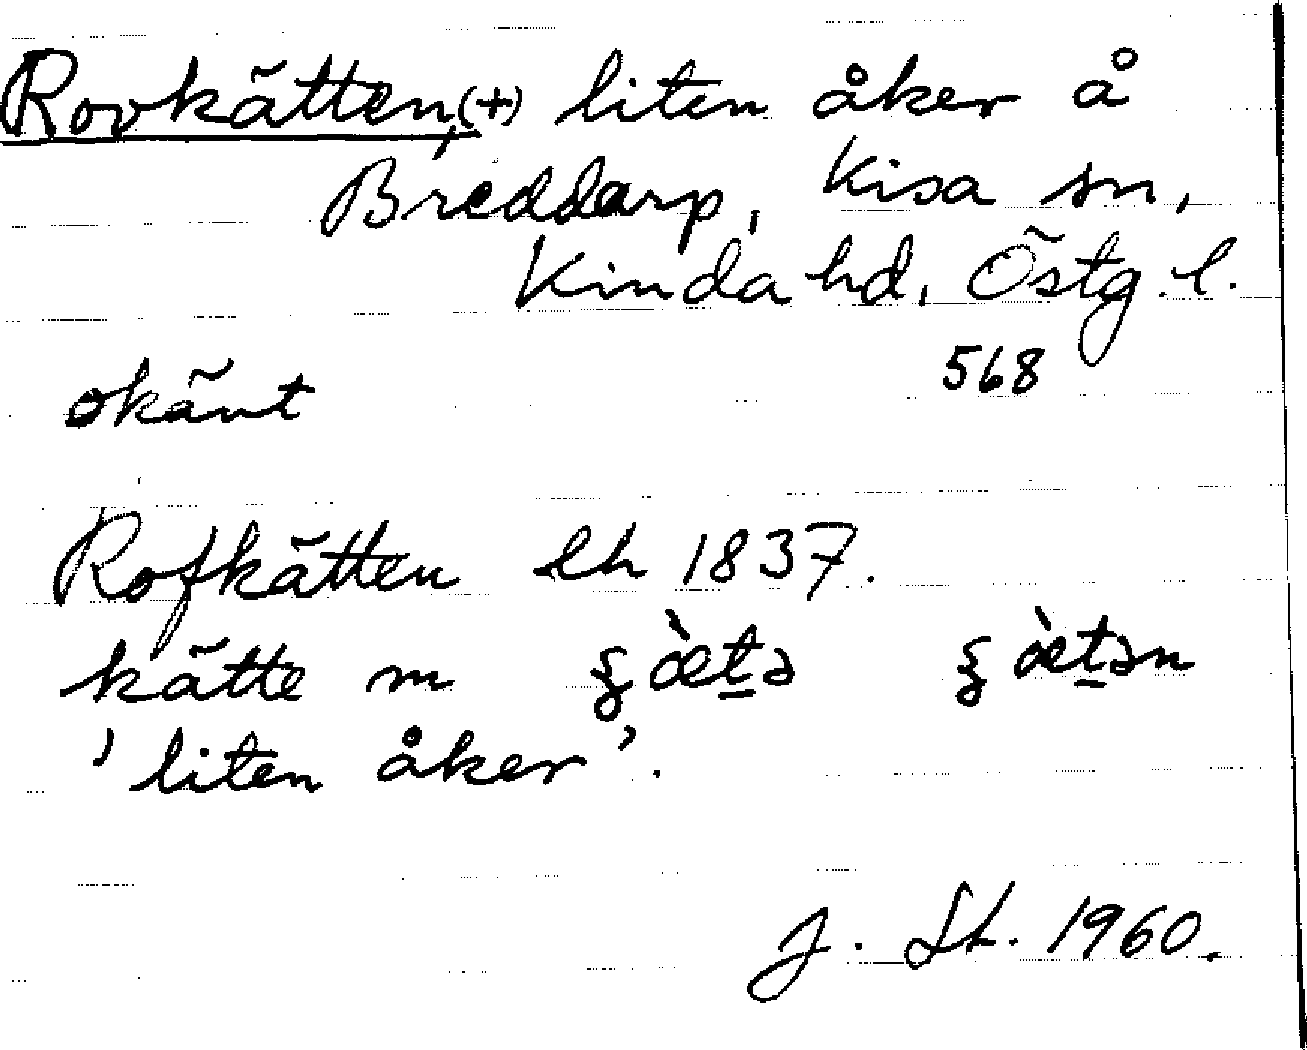 Rovkätten, (+) liten åker å
Breddarp, Kisa sn,
Kinda hd, Östg. l.
568
okänt
Rofkätten lh 1837.
kätte m ȿæ̀t̠ə ȿæ̀t̠ən
'liten åker'.
J. St. 1960.